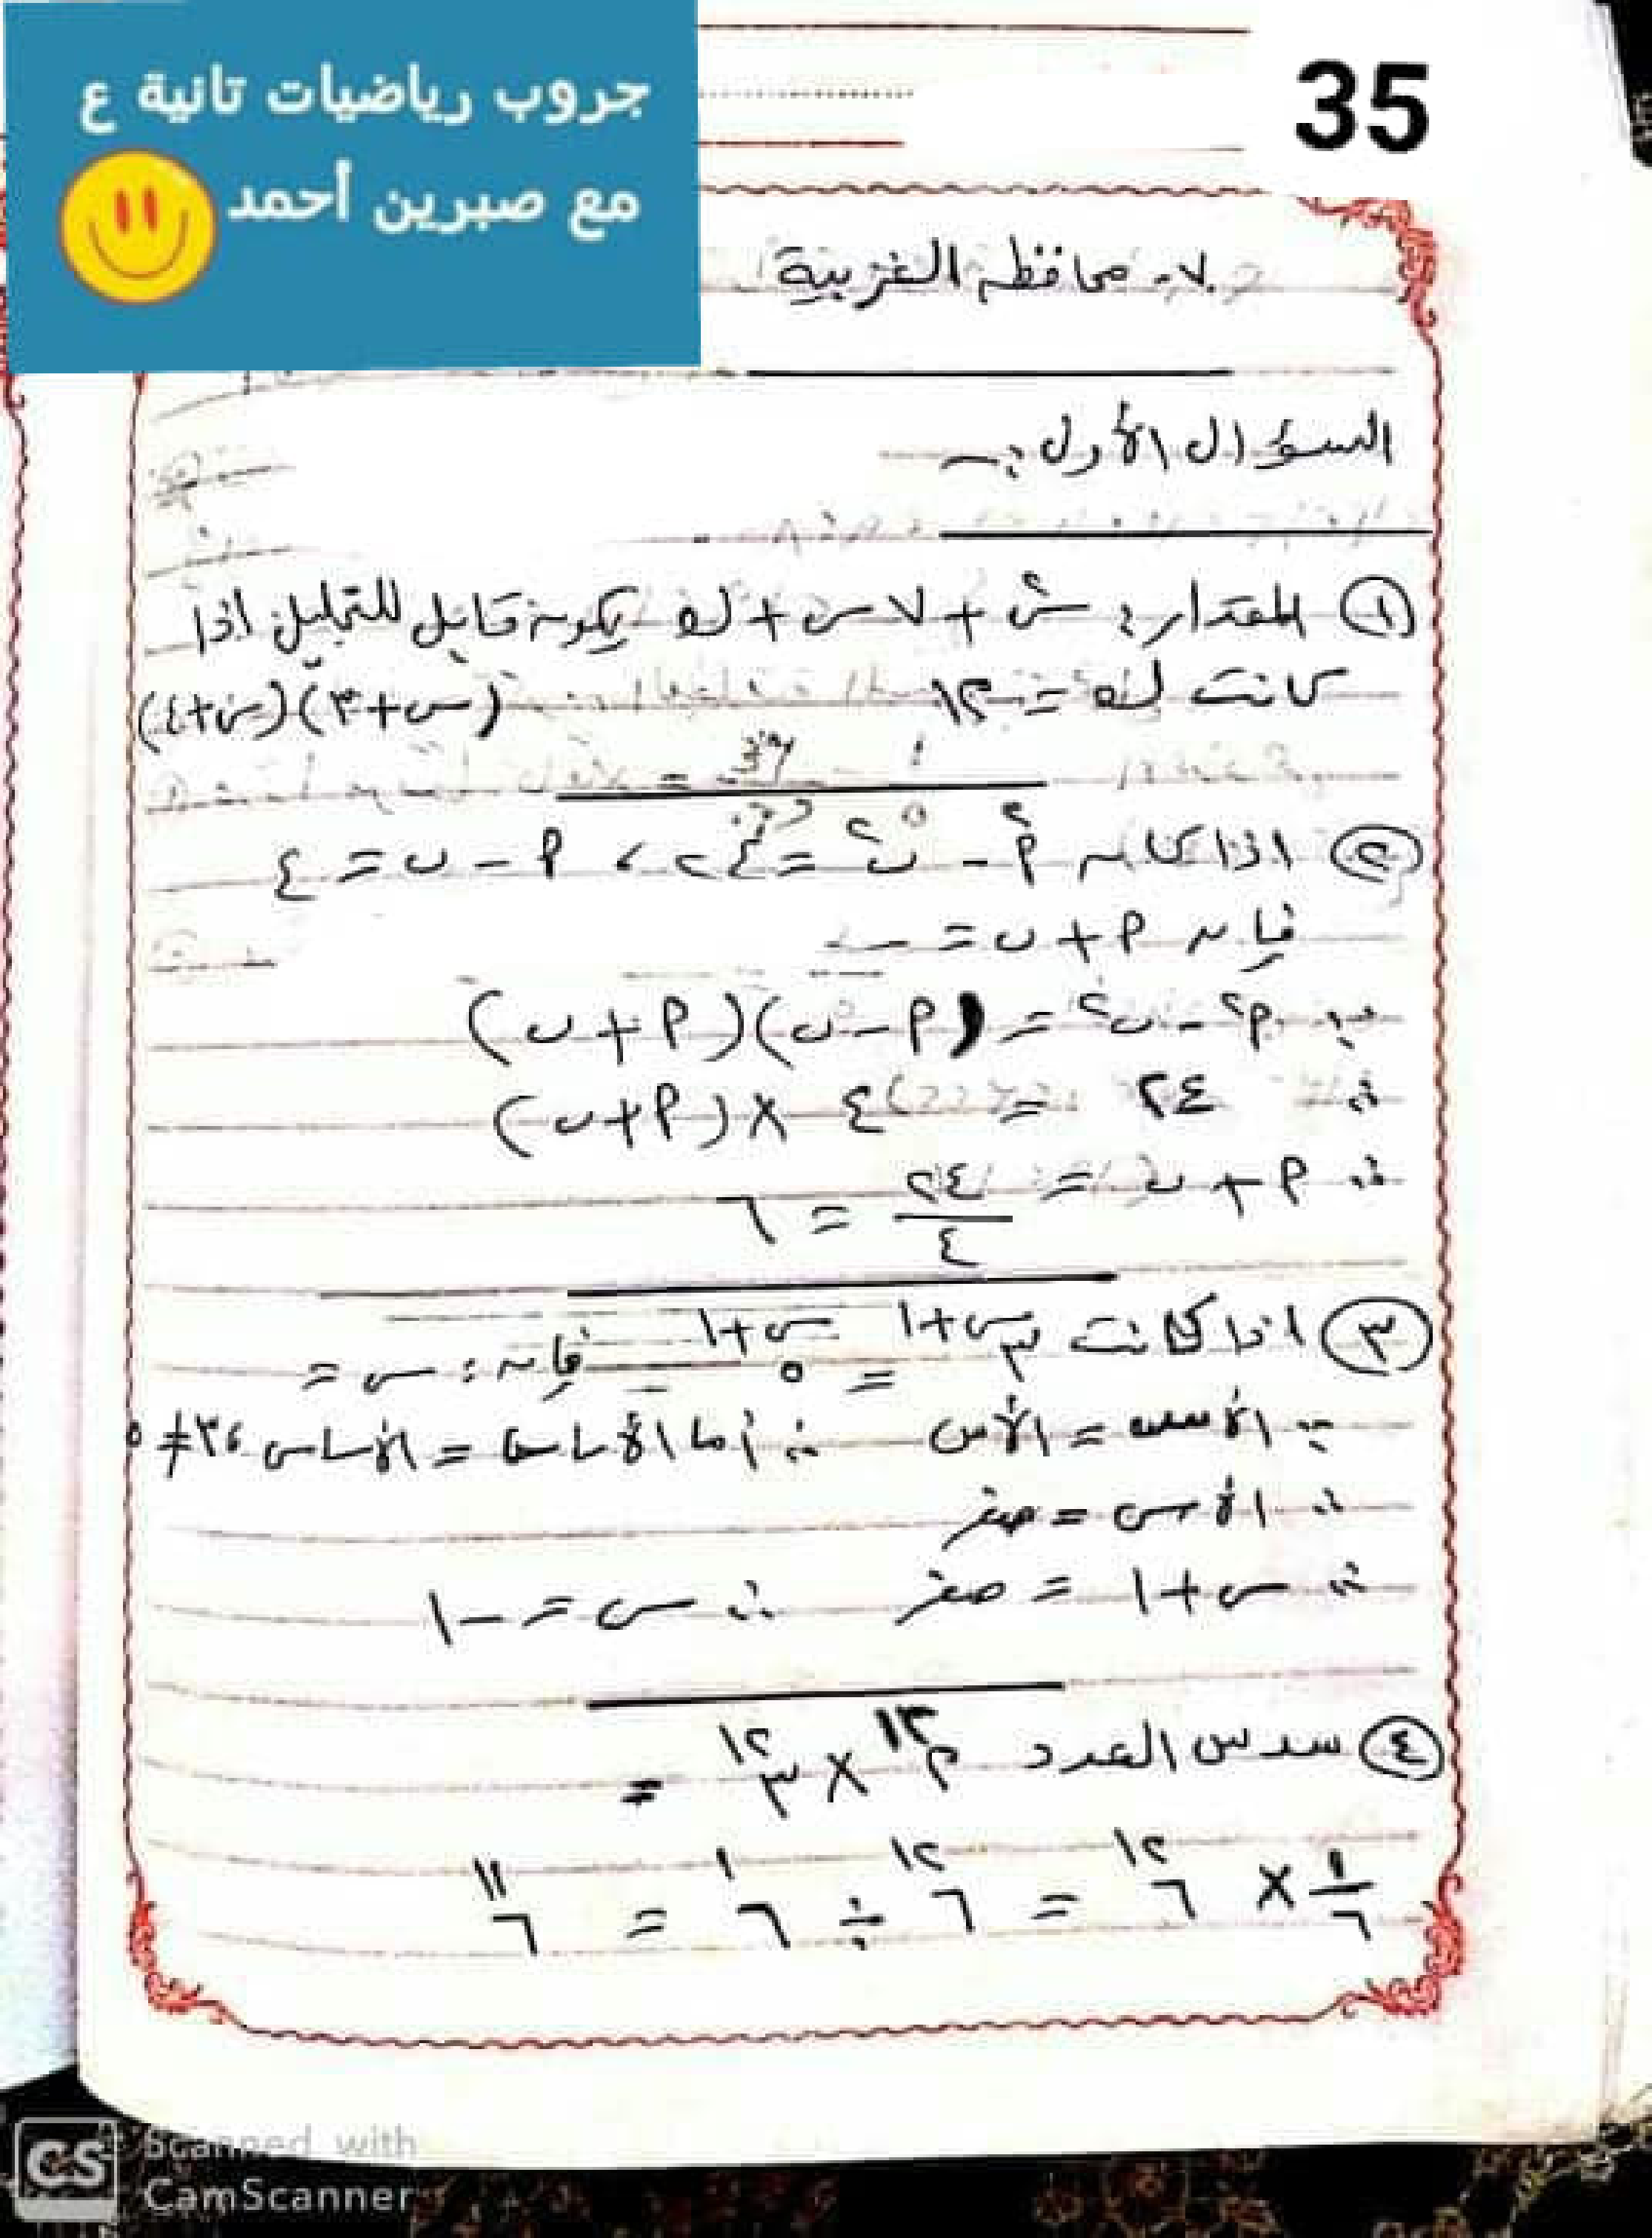 جروب رياضيات تانية ع
مع صبرين أحمد
35
٧- محافظة الغربية
السؤال الأول :-
① المقدار : س² + ٧س + ك يكون قابل للتحليل اذا
كانت ك = ١٢ (س+٣)(س+٤)
② اذا كان م² - ن² = ٢٤ ، م - ن = ٤
فإن م + ن = ـــ
∵ م² - ن² = (م - ن)(م + ن)
∴ ٢٤ = ٤ × (م+ن)
∴ م + ن = ٢٤/٤ = ٦
③ اذا كانت ٣^(س+١) = ٥^(س+١) فإن : س =
∵ الأس = الأس ∴ أما الأساس = الأساس ، ٣ ≠ ٥
∴ الأس = صفر
∴ س + ١ = صفر ∴ س = -١
④ سدس العدد ٢^١٢ × ٣^١٢ =
١/٦ × ٦^١٢ = ٦^١٢ ÷ ٦^١ = ٦^١١
CS Scanned with
CamScanner